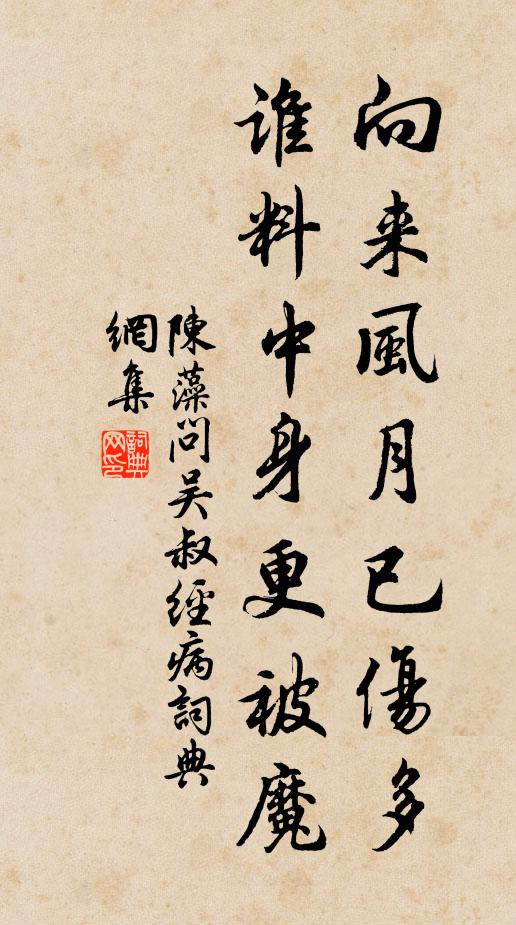 向来風月已傷多
誰料中身更被魔
陳藻問吴叔經病詞典
網集
詞典
网印